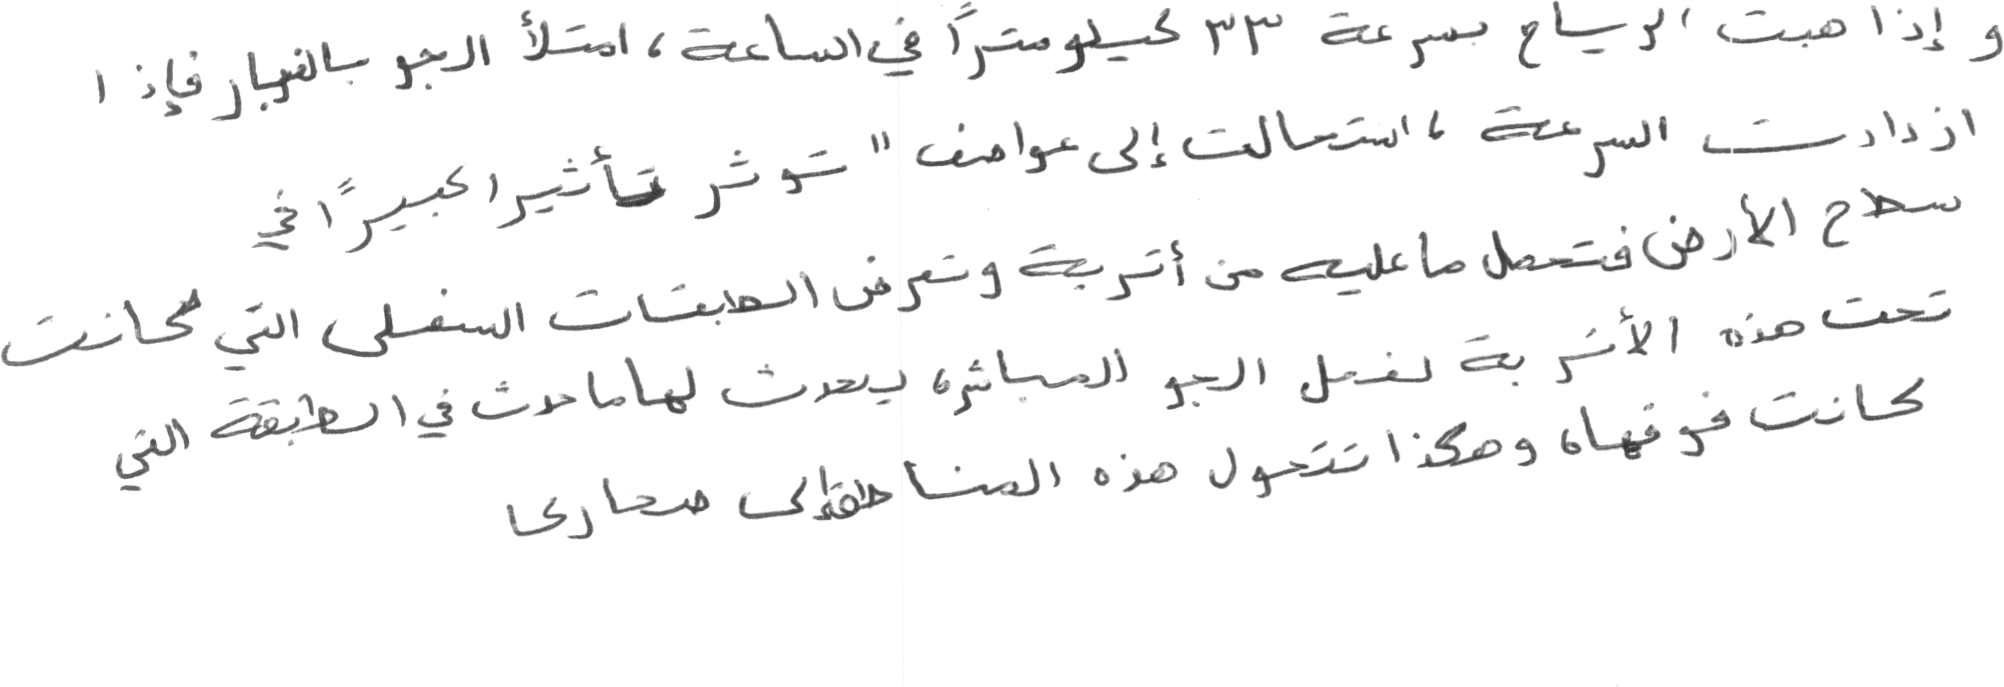 و إذا هبت الرياح بسرعة ٣٣ كيلومترًا في الساعة، امتلأ الجو بالغبار فإذا
ازدادت السرعة، استحالت إلى عواصف " تؤثر تأثيرا كبيرًا في
سطح الأرض فتحمل ما عليه من أتربة وتعرض الطبقات السفلى التي كانت
تحت هذه الأتربة لفعل الجو المباشر، يحدث لها ما حدث في الطبقة التي
كانت فوقها، وهكذا تتحول هذه المناطق إلى صحارى